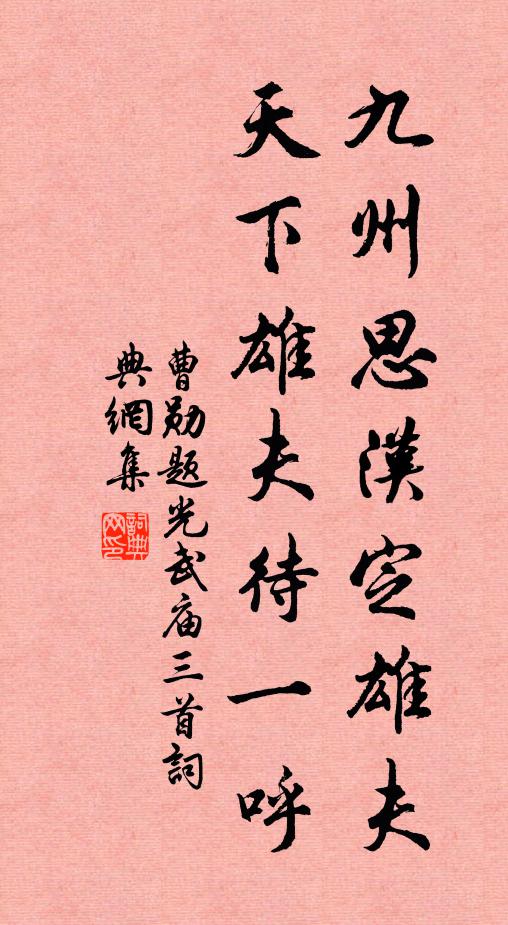 九州思漢定雄夫
天下雄夫待一呼
曹勛題光武庙三首詞
典網集
詞典网印